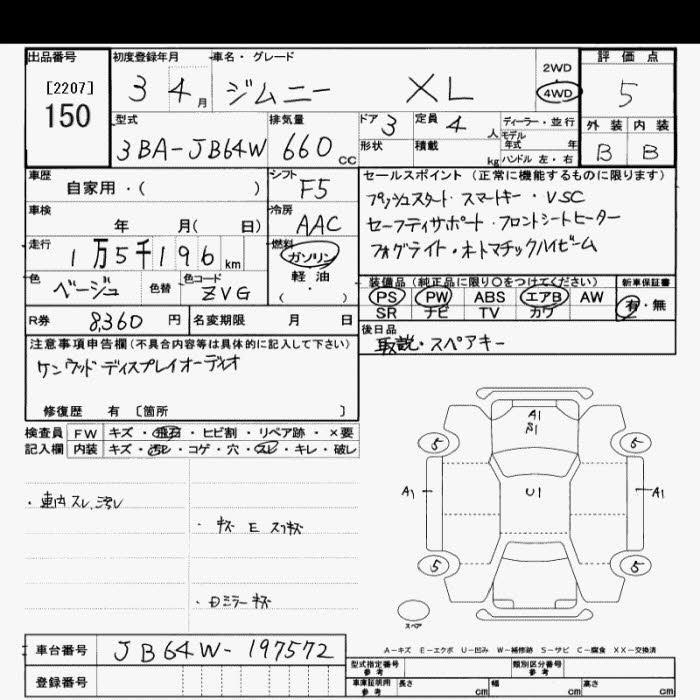 出品番号 初度登録年月 車名・グレード 評価点
[2207]
150
3 4月 ジムニー XL 2WD 4WD 5
型式 排気量 ドア 3 定員 4人 ディーラー・並行 外装 内装
モデル年式 年
3BA-JB64W 660cc 形状 積載 kg ハンドル 左・右 B B
車歴 自家用・( ) シフト F5 セールスポイント (正常に機能するものに限ります)
プッシュスタート・スマートキー・VSC
車検 年 月( 日) 冷房 AAC セーフティサポート・フロントシートヒーター
走行 1万5千196km 燃料 ガソリン フォグライト・オートマチックハイビーム
軽・油
・
( )
色 ベージュ 色替 色コード ZVG
装備品 (純正品に限り○をつけてください) 新車保証書
PS PW ABS エアB AW 有・無
SR ナビ TV カワ
R券 8,360円 名変期限 月 日
後日品
取説・スペアキー
注意事項申告欄(不具合内容等は具体的に記入して下さい)
ケンウッドディスプレイオーディオ
修復歴 有 〔箇所 〕
検査員 FW キズ・飛石・ヒビ割・リペア跡・×要
記入欄 内装 キズ・汚レ・コゲ・穴・スレ・キレ・破レ
・車内スレ、汚レ
・キズ E スリキズ
・ミラーキズ
A1
5 5
A1 U1 A1
5 5
スペア
A-キズ E-エクボ U-凹み W-補修跡 S-サビ C-腐食 XX-交換済
車台番号 JB64W-197572
型式指定番号 参考 類別区分番号 参考
登録番号 車庫証明用 参考 長さ cm 幅 cm 高さ cm